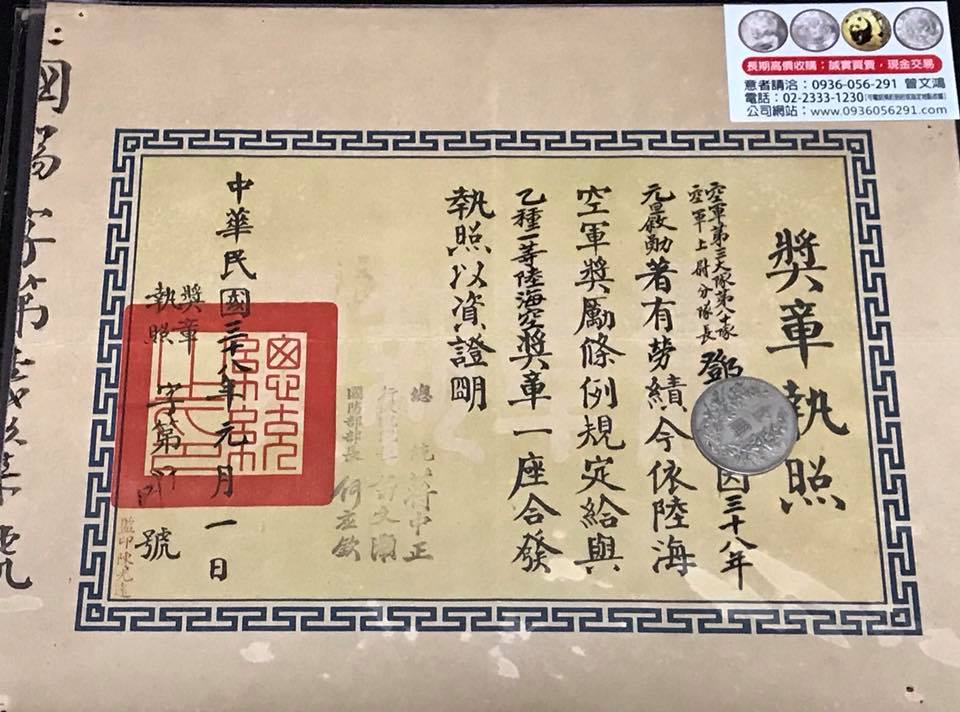 長期高價收購；誠實買賣，現金交易
意者請洽：0936-056-291 曾文鴻
電話：02-2333-1230
公司網站：www.0936056291.com
獎章執照
空軍第三大隊第八隊
空軍上尉分隊長
鄧 因三十八年
元旦敘勳著有勞績今依陸海
空軍獎勵條例規定給與
乙種一等陸海空獎章一座合發
執照以資證明
總統蔣中正
文灝
國防部部長何應欽
中華民國三十八年元月一日
獎章
執照
字第 號
監印陳
國 字第 號